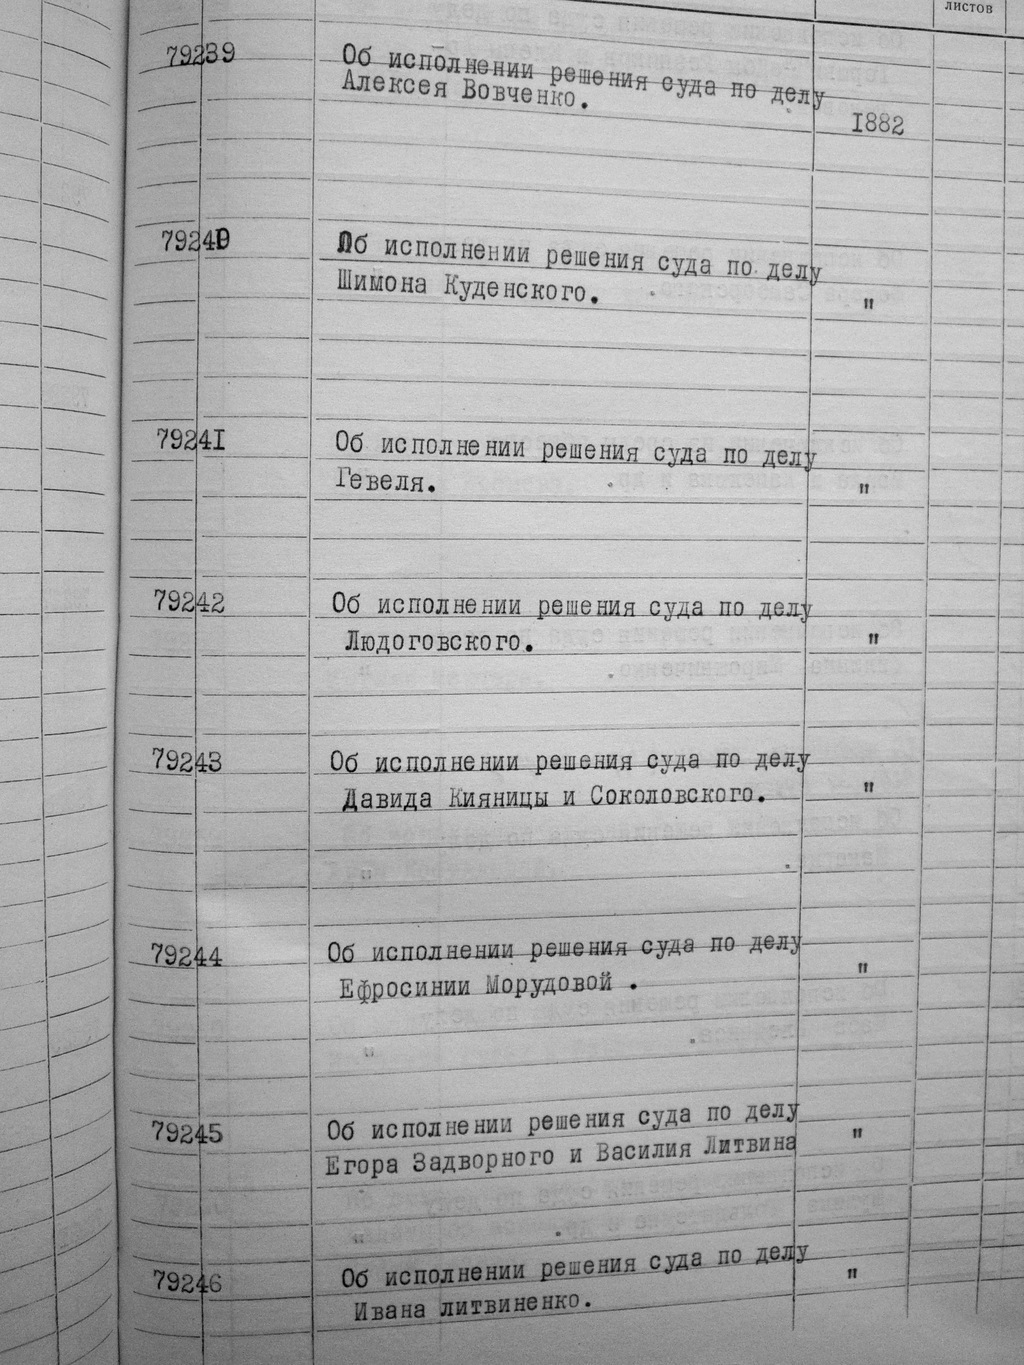 листов
79239 Об исполнении решения суда по делу
Алексея Вовченко.
1882
79240 Об исполнении решения суда по делу
Шимона Куденского. "
79241 Об исполнении решения суда по делу
Гевеля. "
79242 Об исполнении решения суда по делу
Людоговского. "
79243 Об исполнении решения суда по делу
Давида Кияницы и Соколовского. "
79244 Об исполнении решения суда по делу
Ефросинии Морудовой . "
79245 Об исполнении решения суда по делу "
Егора Задворного и Василия Литвина
79246 Об исполнении решения суда по делу "
Ивана литвиненко.